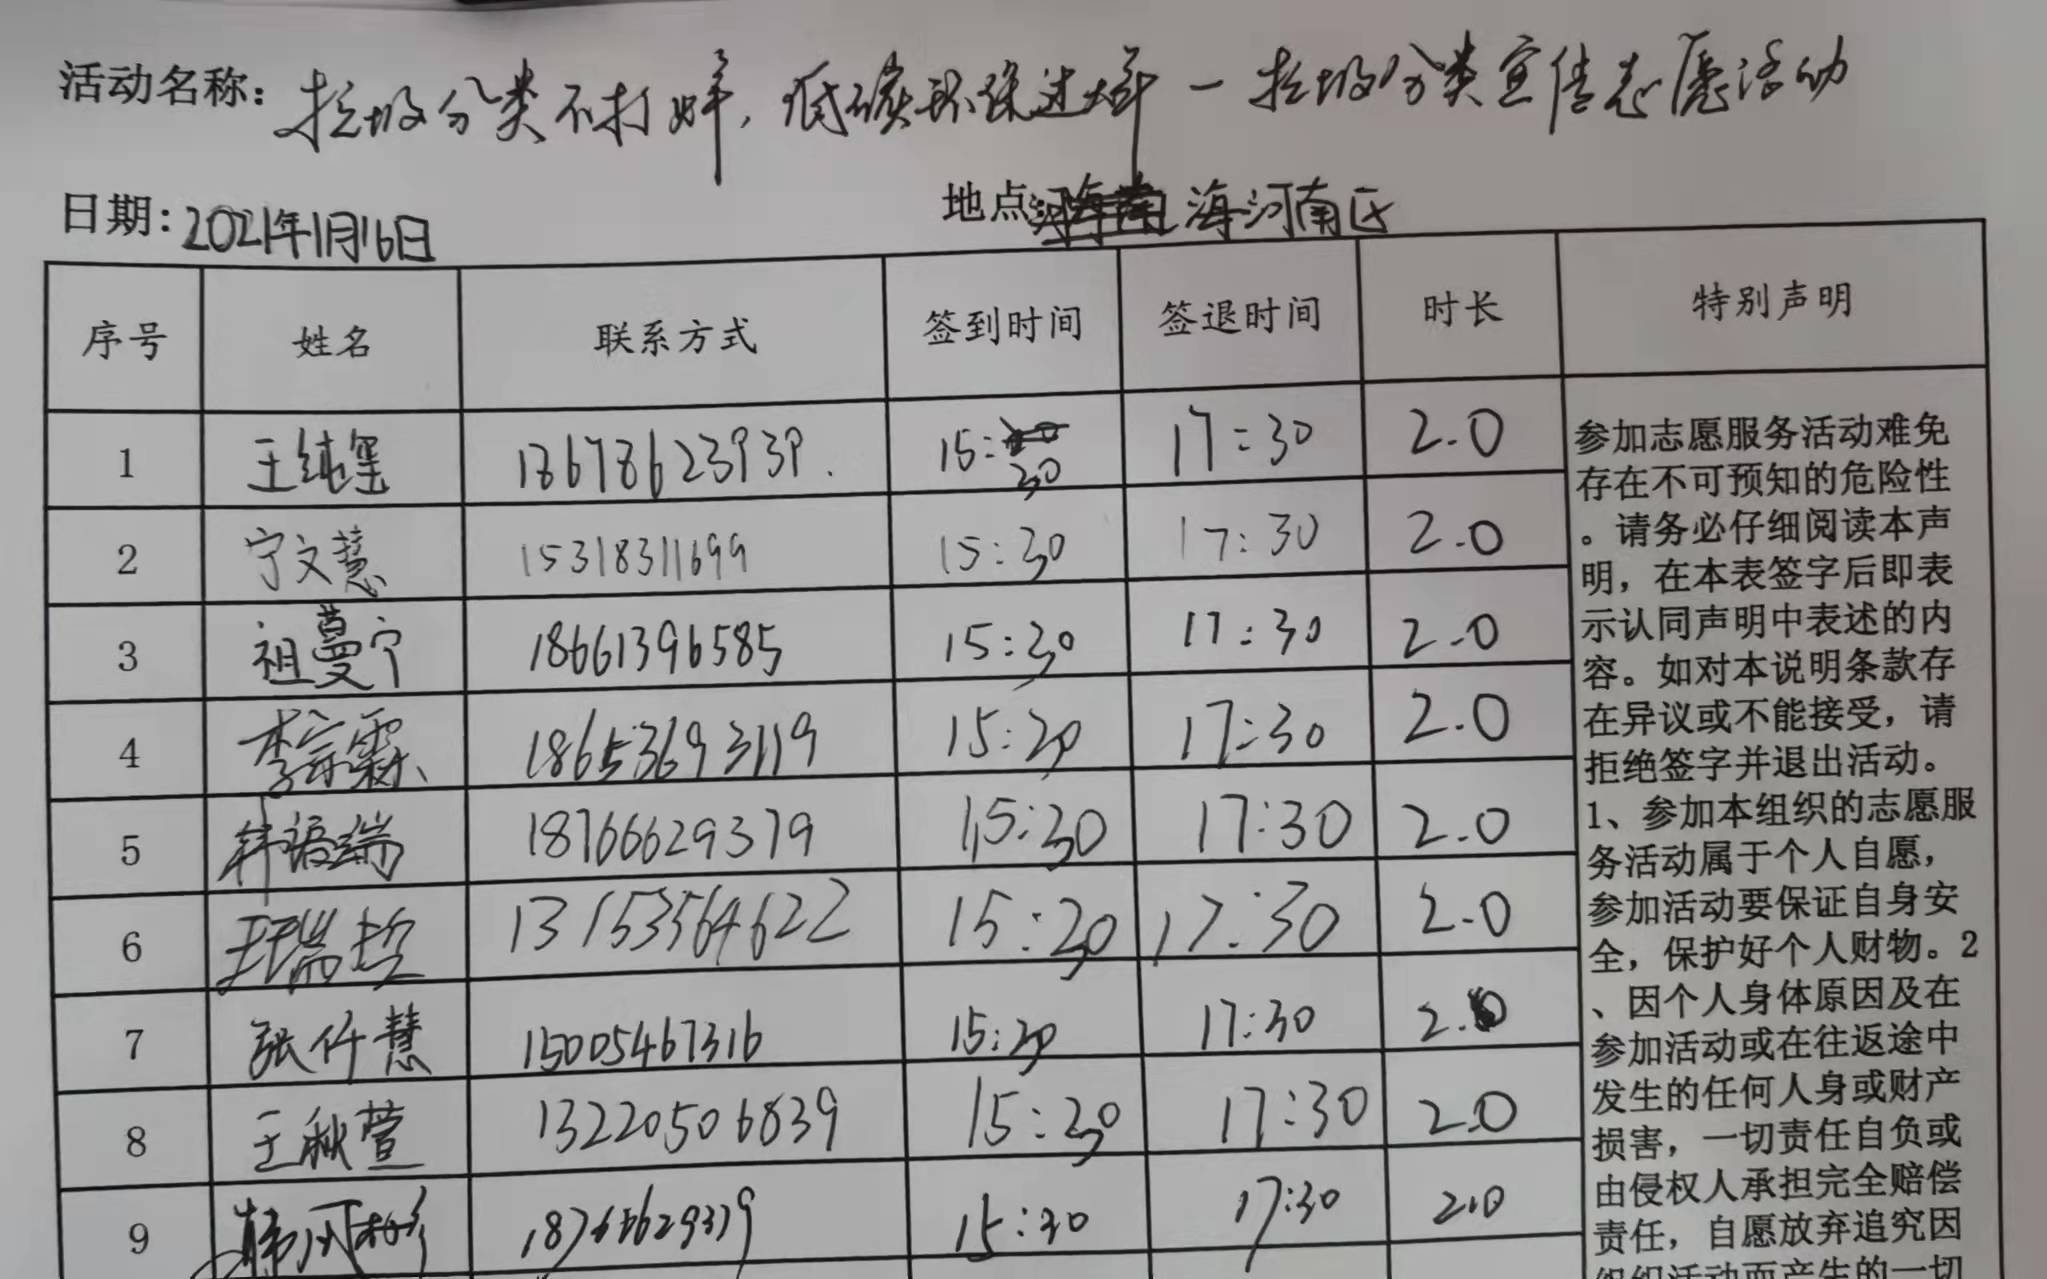 活动名称：垃圾分类不打烊，低碳环保过大年—垃圾分类宣传志愿活动
日期：2021年1月16日 地点： 海河南区
序号 姓名 联系方式 签到时间 签退时间 时长 特别声明
1 王纯玺 18678623939. 15:30 17:30 2.0
2 宁文慧 15318311699 15:30 17:30 2.0
3 祖蔓宁 18661396585 15:30 17:30 2.0
4 李宗霖 18653693119 15:30 17:30 2.0
5 韩语端 18766629379 15:30 17:30 2.0
6 王瑞哲 13153564622 15:30 17:30 2.0
7 张仟慧 15005467316 15:30 17:30 2.0
8 王秋萱 13220506839 15:30 17:30 2.0
9 15:30 17:30 2.0
参加志愿服务活动难免
存在不可预知的危险性
。请务必仔细阅读本声
明，在本表签字后即表
示认同声明中表述的内
容。如对本说明条款存
在异议或不能接受，请
拒绝签字并退出活动。
1、参加本组织的志愿服
务活动属于个人自愿，
参加活动要保证自身安
全，保护好个人财物。2
、因个人身体原因及在
参加活动或在往返途中
发生的任何人身或财产
损害，一切责任自负或
由侵权人承担完全赔偿
责任，自愿放弃追究因
组织活动而产生的一切